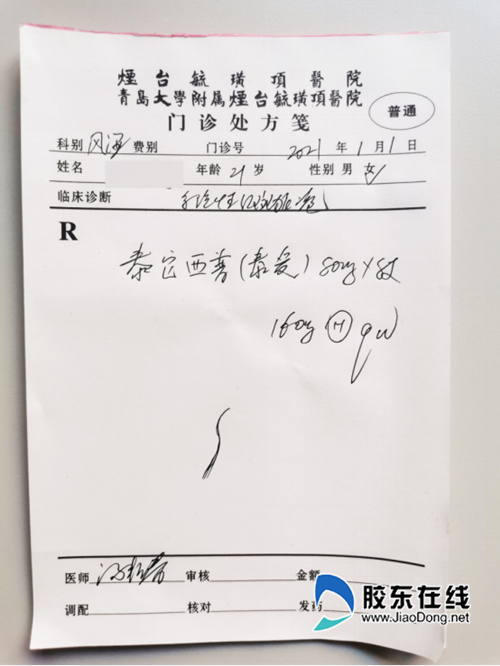 煙台毓璜頂醫院
青島大學附属煙台毓璜頂醫院
门诊处方笺
普通
科别 风湿 费别 门诊号 2021 年 1 月 1 日
姓名 年龄 21 岁 性别 男 女
临床诊断 系统性红斑狼疮
R
泰它西普(泰爱) 80mg x 8支
160mg H qw
医师 审核 金额
调配 核对 发药
胶东在线
www.JiaoDong.net